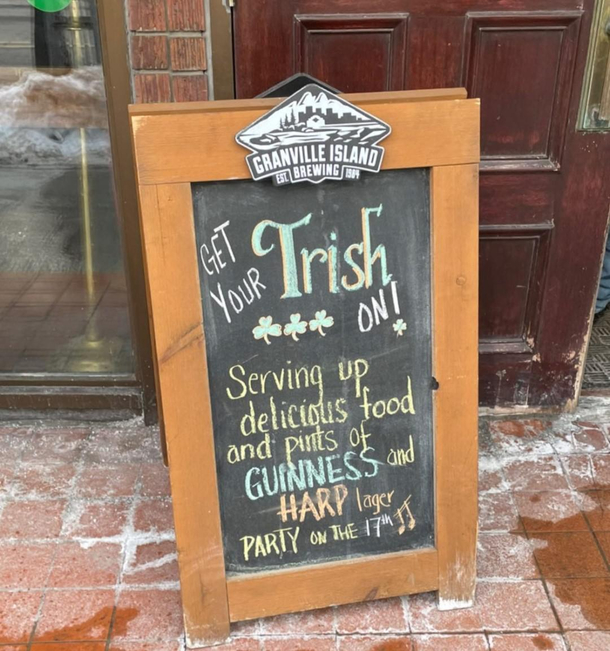 GRANVILLE ISLAND
EST. BREWING 1984
GET
YOUR
Irish
ON!
Serving up
delicious food
and pints of
GUINNESS and
HARP lager
PARTY ON THE 17th